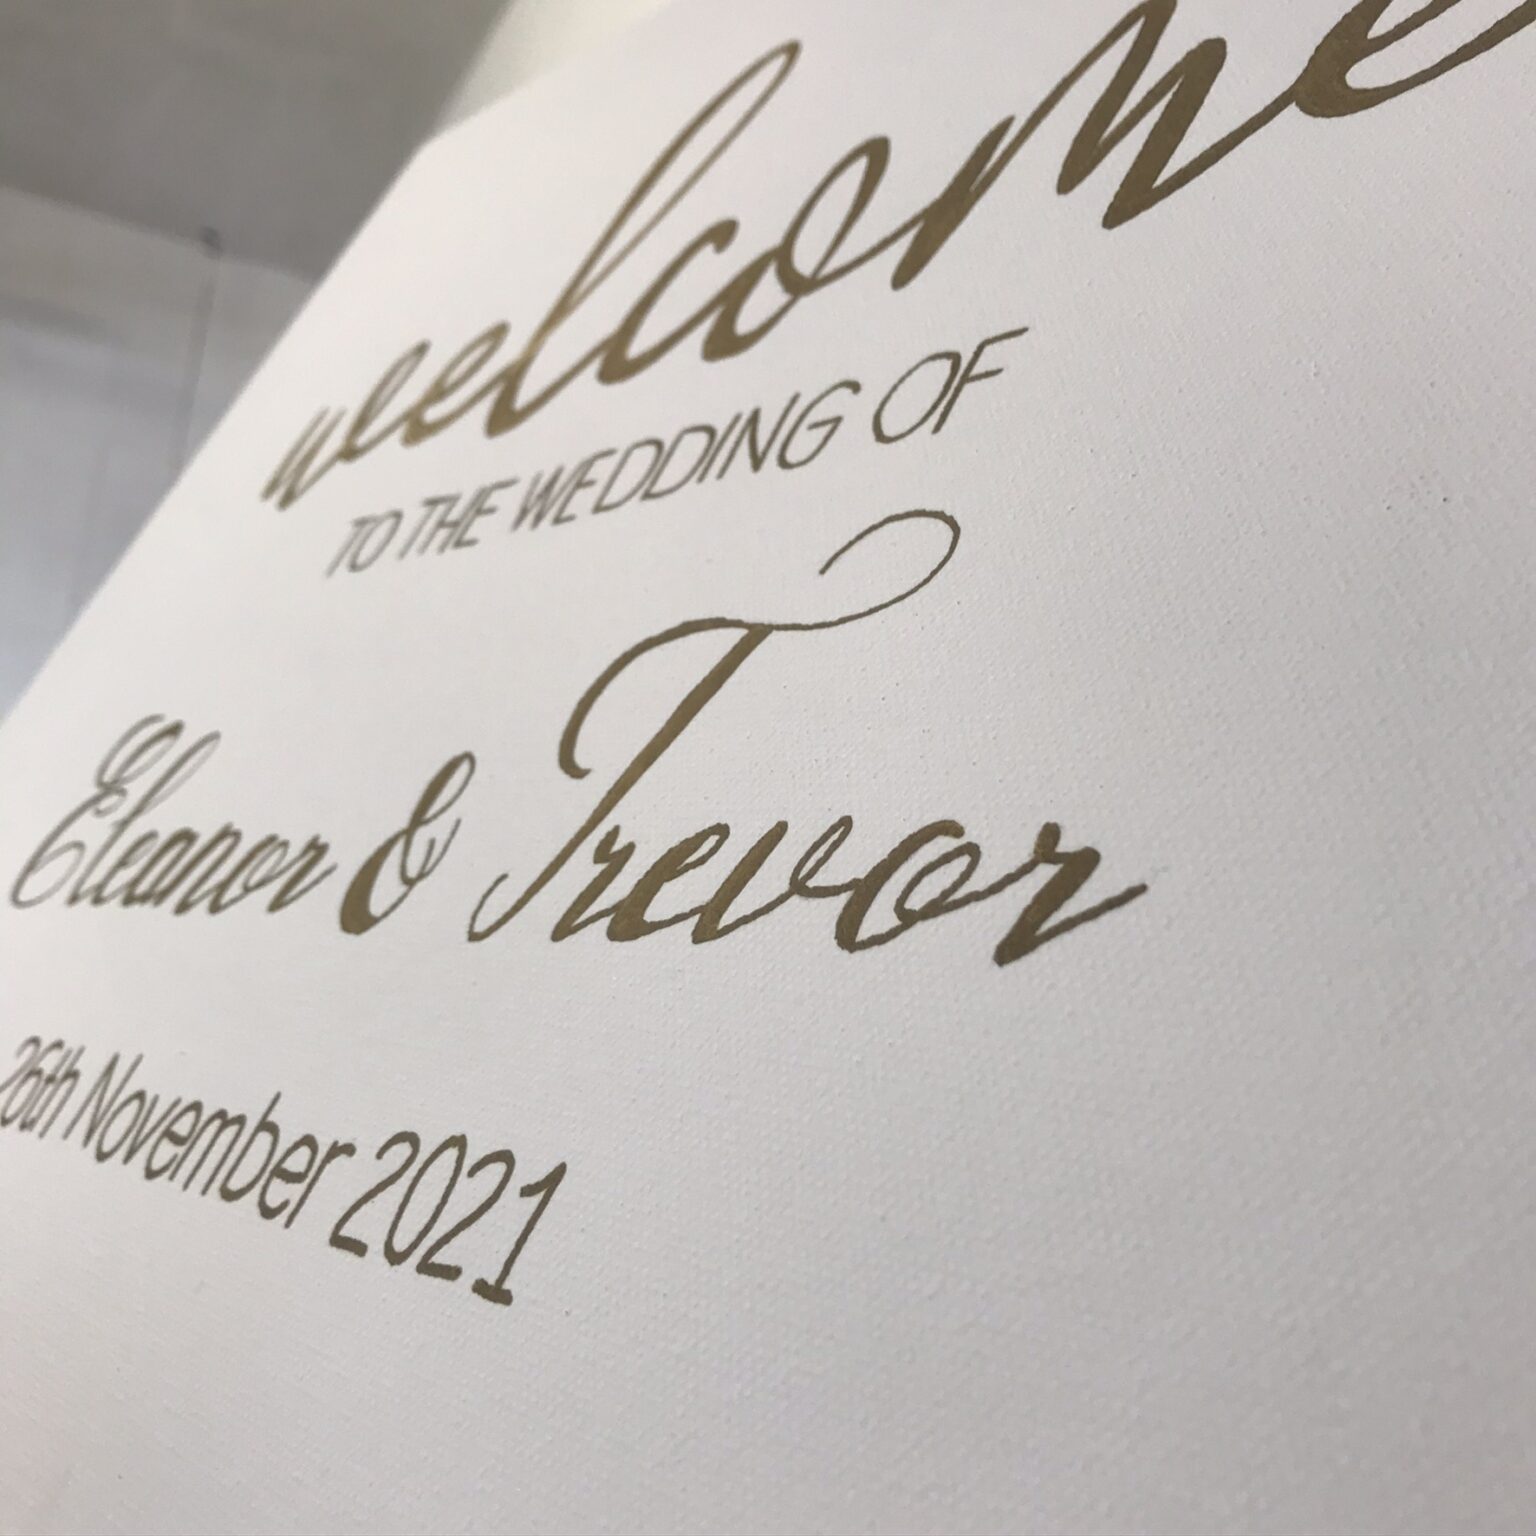 welcome
TO THE WEDDING OF
Eleanor & Trevor
26th November 2021